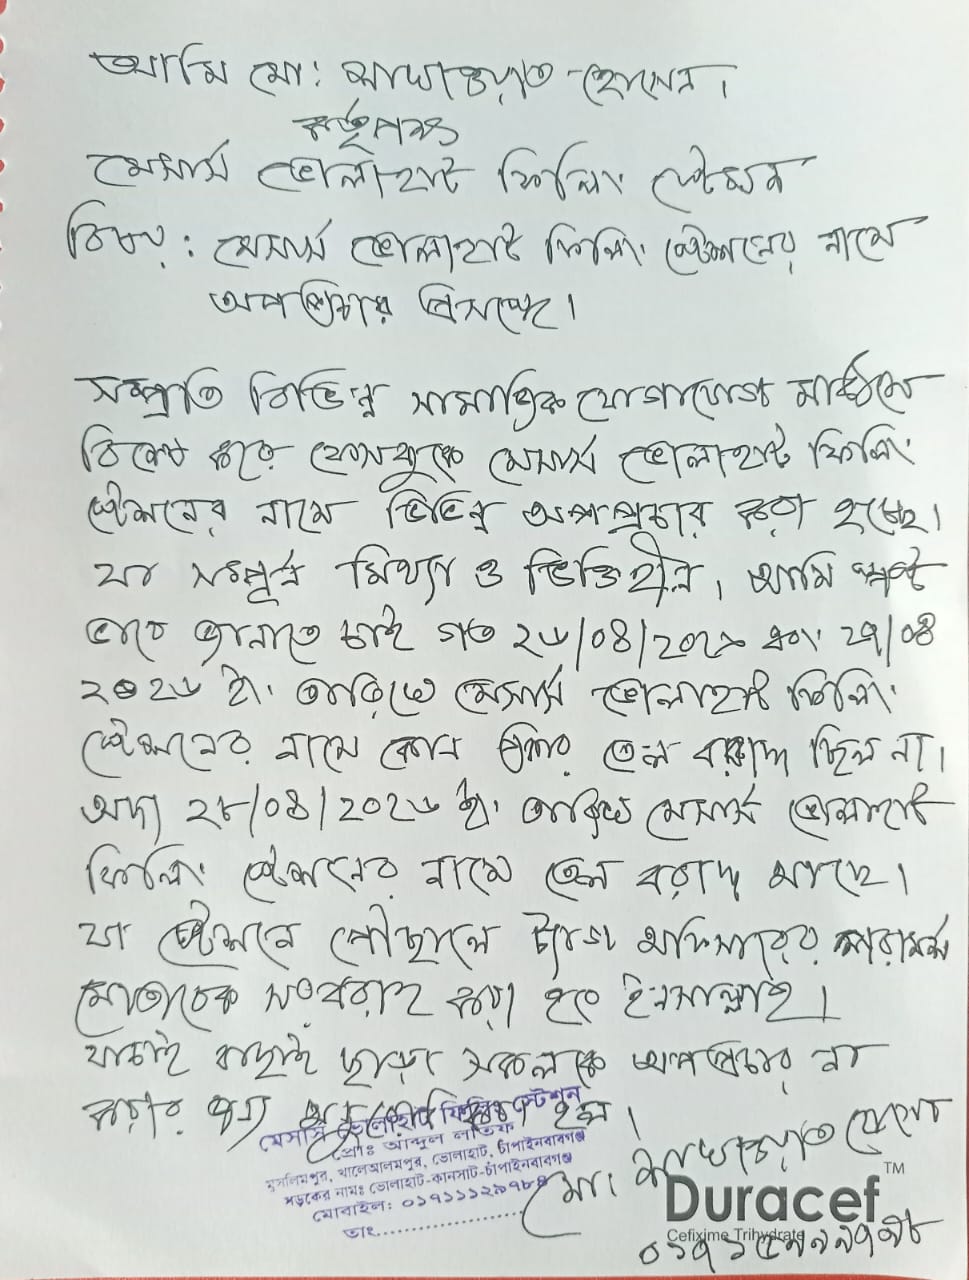 আমি মো: সাখাওয়াত হোসেন।
কর্তৃপক্ষ
মেসার্স ভোলাহাট ফিলিং স্টেশন
বিষয়: মেসার্স ভোলাহাট ফিলিং স্টেশনের নামে
অপপ্রচার প্রসঙ্গে।
সম্প্রতি বিভিন্ন সামাজিক যোগাযোগ মাধ্যমে
বিশেষ করে ফেসবুকে মেসার্স ভোলাহাট ফিলিং
স্টেশনের নামে বিভিন্ন অপপ্রচার করা হচ্ছে।
যা সম্পূর্ন মিথ্যা ও ভিত্তিহীন। আমি স্পষ্ট
ভাবে জানাতে চাই গত ২৬/০৪/২০২৬ এবং ২৭/০৪
২০২৬ ইং তারিখে মেসার্স ভোলাহাট ফিলিং
স্টেশনের নামে কোন প্রকার তেল বরাদ্দ ছিল না।
অদ্য ২৮/০৪/২০২৬ ইং তারিখে মেসার্স ভোলাহাট
ফিলিং স্টেশনের নামে তেল বরাদ্দ আছে।
যা স্টেশনে পৌছালে ট্যাগ অফিসারের পরামর্শ
মোতাবেক সরবরাহ করা হবে ইনশাল্লাহ।
যাচাই বাছাই ছাড়া সকলকে অপপ্রচার না
করার জন্য অনুরোধ করা হল।
মেসার্স ভোলাহাট ফিলিং স্টেশন
প্রোঃ আব্দুল লতিফ
মুসলিমপুর, খালেআলমপুর, ভোলাহাট, চাঁপাইনবাবগঞ্জ
সড়কের নামঃ ভোলাহাট-কানসাট-চাঁপাইনবাবগঞ্জ
মোবাইল: ০১৭১১১২৯৭৮৪
তাং....................
মো: সাখাওয়াত হোসেন
Duracef™
Cefixime Trihydrate